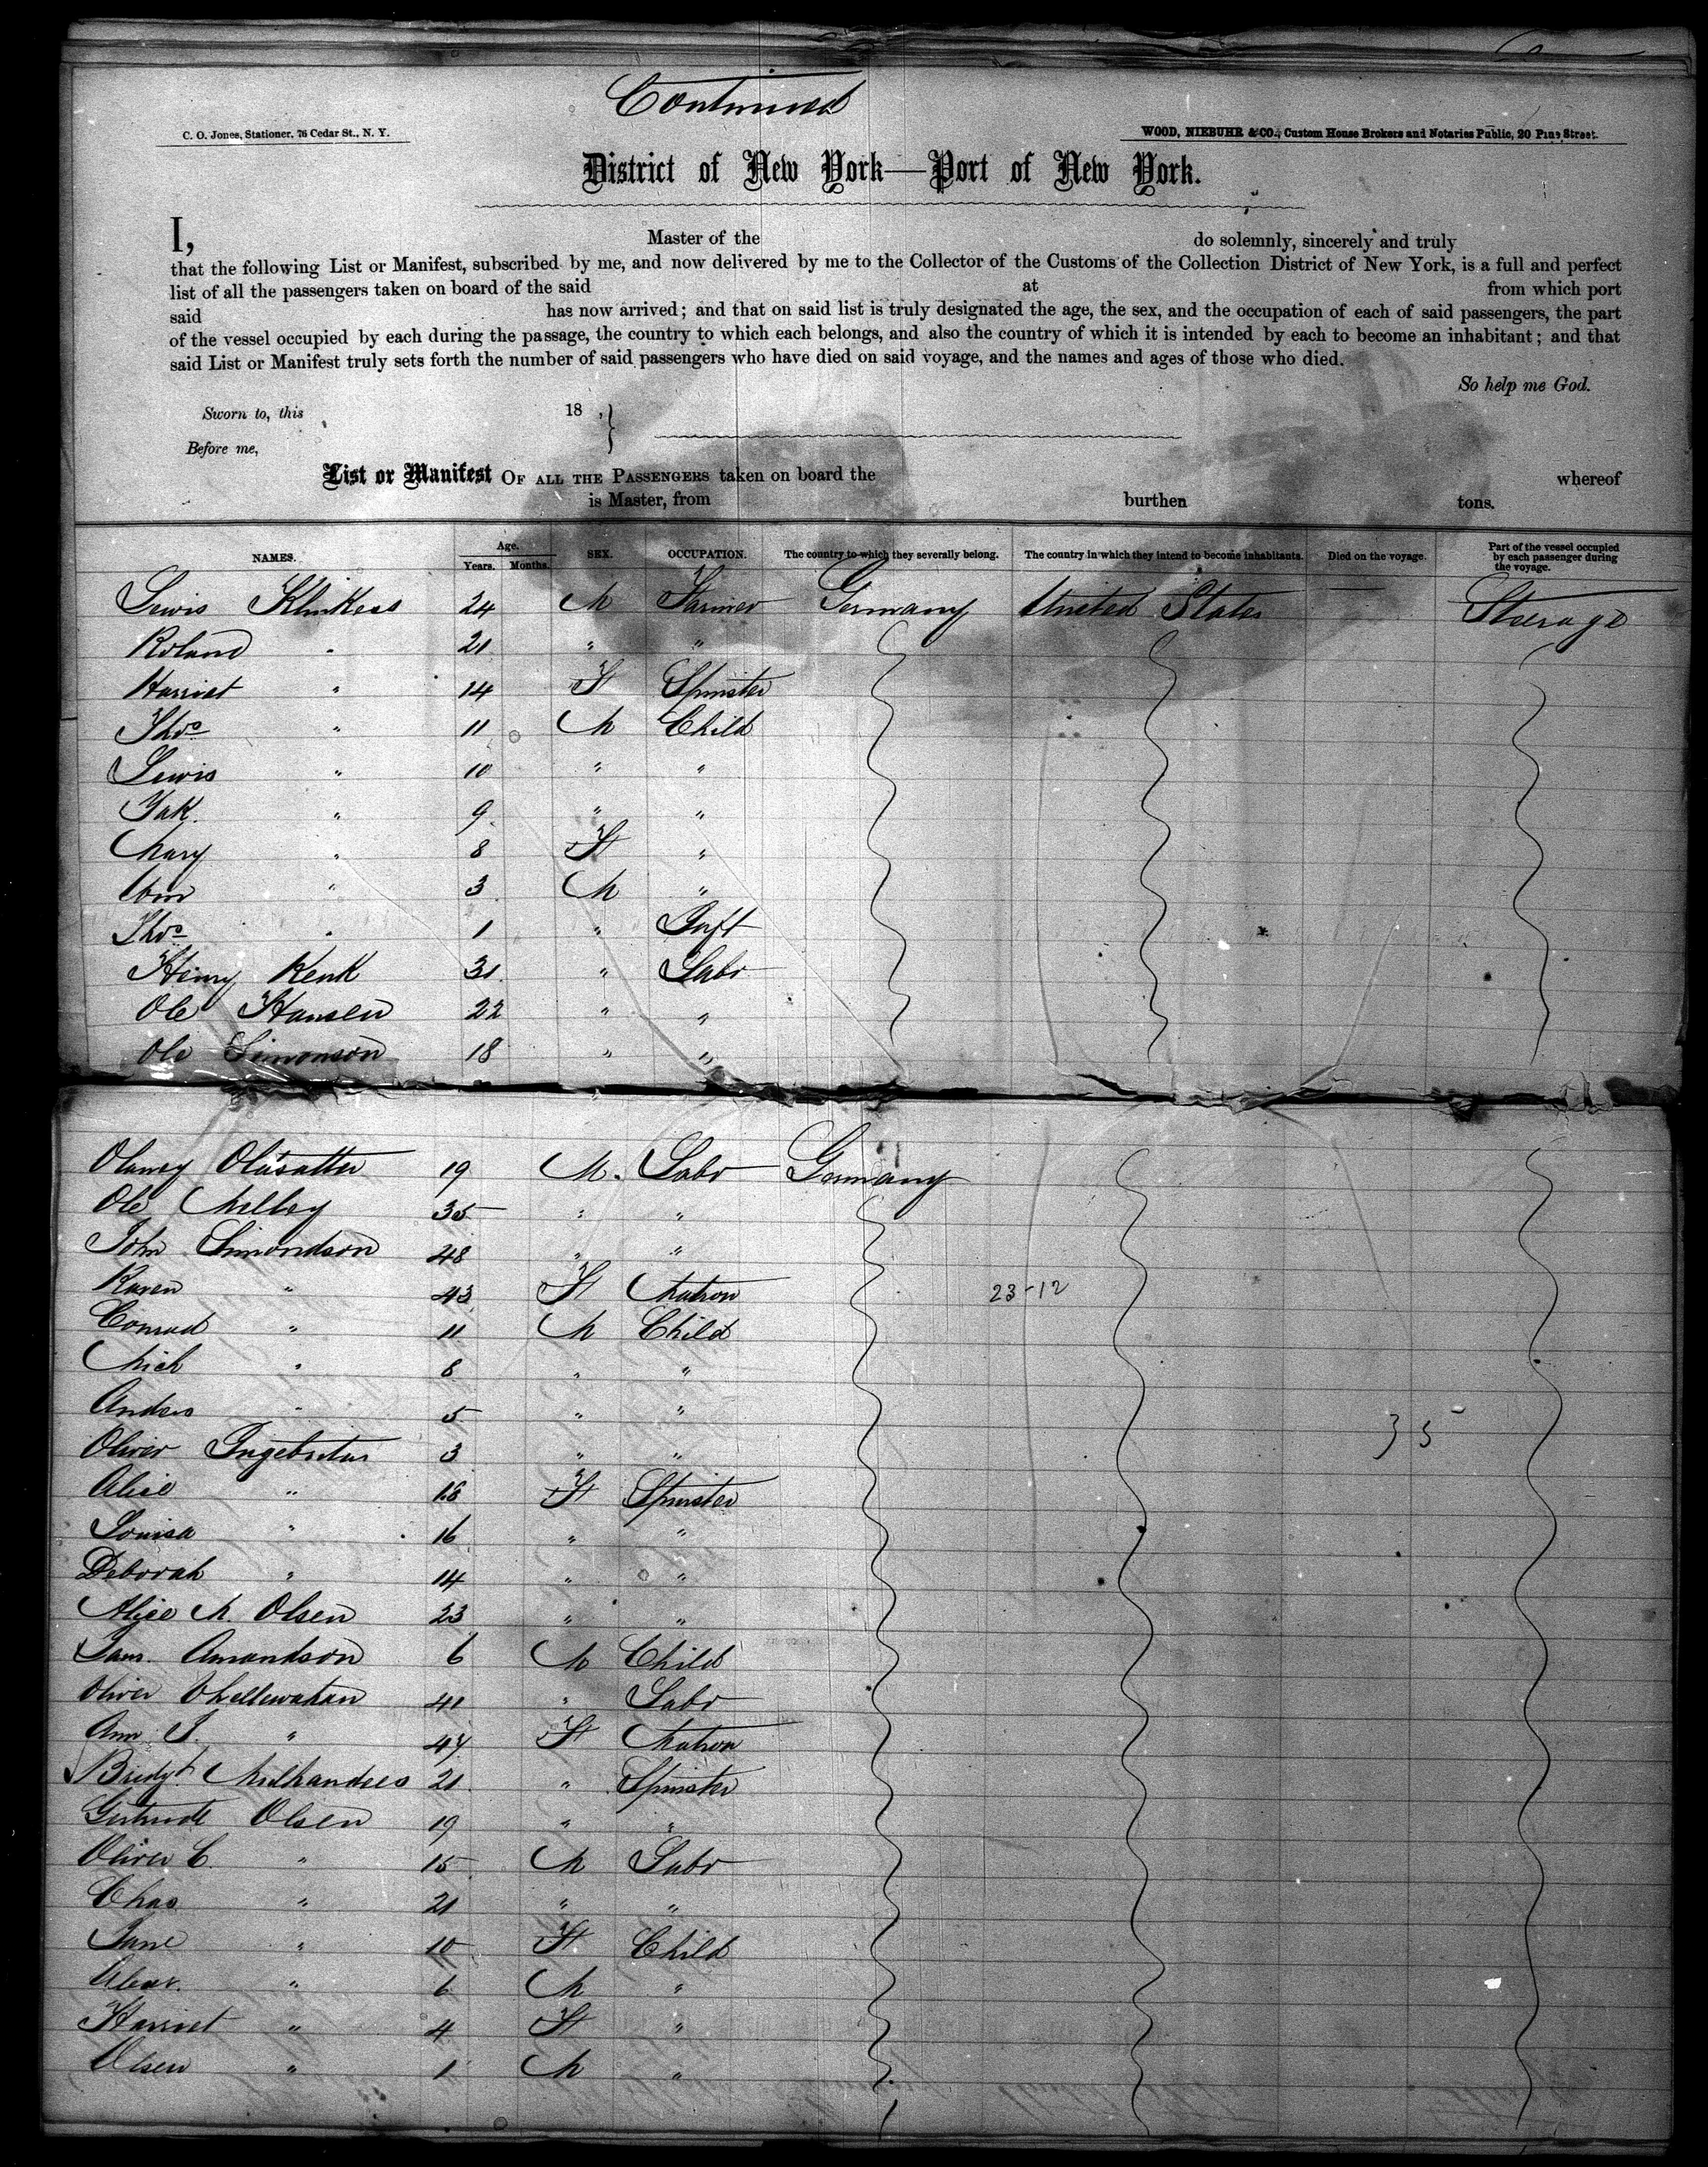 Continued
C. O. Jones, Stationer, 76 Cedar St., N. Y.
WOOD, NIEBUHR & CO., Custom House Brokers and Notaries Public, 20 Pine Street.
District of New York—Port of New York.
I, Master of the do solemnly, sincerely and truly
that the following List or Manifest, subscribed by me, and now delivered by me to the Collector of the Customs of the Collection District of New York, is a full and perfect
list of all the passengers taken on board of the said at from which port
said has now arrived; and that on said list is truly designated the age, the sex, and the occupation of each of said passengers, the part
of the vessel occupied by each during the passage, the country to which each belongs, and also the country of which it is intended by each to become an inhabitant; and that
said List or Manifest truly sets forth the number of said passengers who have died on said voyage, and the names and ages of those who died.
So help me God.
Sworn to, this 18 ,
Before me,
List or Manifest OF ALL THE PASSENGERS taken on board the whereof
is Master, from burthen tons.
NAMES. Age. Years. Months. SEX. OCCUPATION. The country to which they severally belong. The country in which they intend to become inhabitants. Died on the voyage. Part of the vessel occupied by each passenger during the voyage.
Lewis 24 M Farmer Germany United States Steerage
Roland " 21 " "
Harriet " 14 F Spinster
Thos " 11 M Child
Lewis " 10 " "
Jak. " 9 " "
Mary " 8 F "
Wm " 3 M "
Thos " 1 " Inft
Henry Kenk 31 " Labr
Ole Hansen 22 " "
Ole Simonson 18 " "
19 M. Labr Germany
Ole Melbey 35 " "
John Simondson 48 " "
Karen " 43 F Matron 23-12
Conrad " 11 M Child
Mich " 8 " "
Anders " 5 " " 35
Oliver 3 " "
Alice " 18 F Spinster
Louisa " 16 " "
Deborah " 14 " "
Alice M. Olsen 23 " "
Amandson 6 M Child
Oliver 41 " Labr
Ann J. " 47 F Matron
Bridgt 21 " Spinster
Gertrude Olsen 19 " "
Oliver C. " 15 M Labr
Chas " 21 " "
Jane " 10 F Child
" 6 M "
Harriet " 4 F "
Olsen " 1 M "